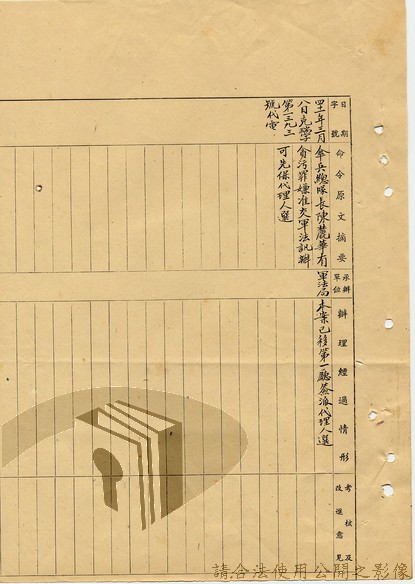 日期
字號
命令原文摘要
承辦
單位
辦理經過情形
考核及
改進意見
四十一年三月
八日克
第一三九三
號代電
傘兵總隊長陳麓華有
貪污罪嫌准交軍法訊辦
可先保代理人選
軍法局
本案已移第一廳簽派代理人選
請合法使用公開之影像